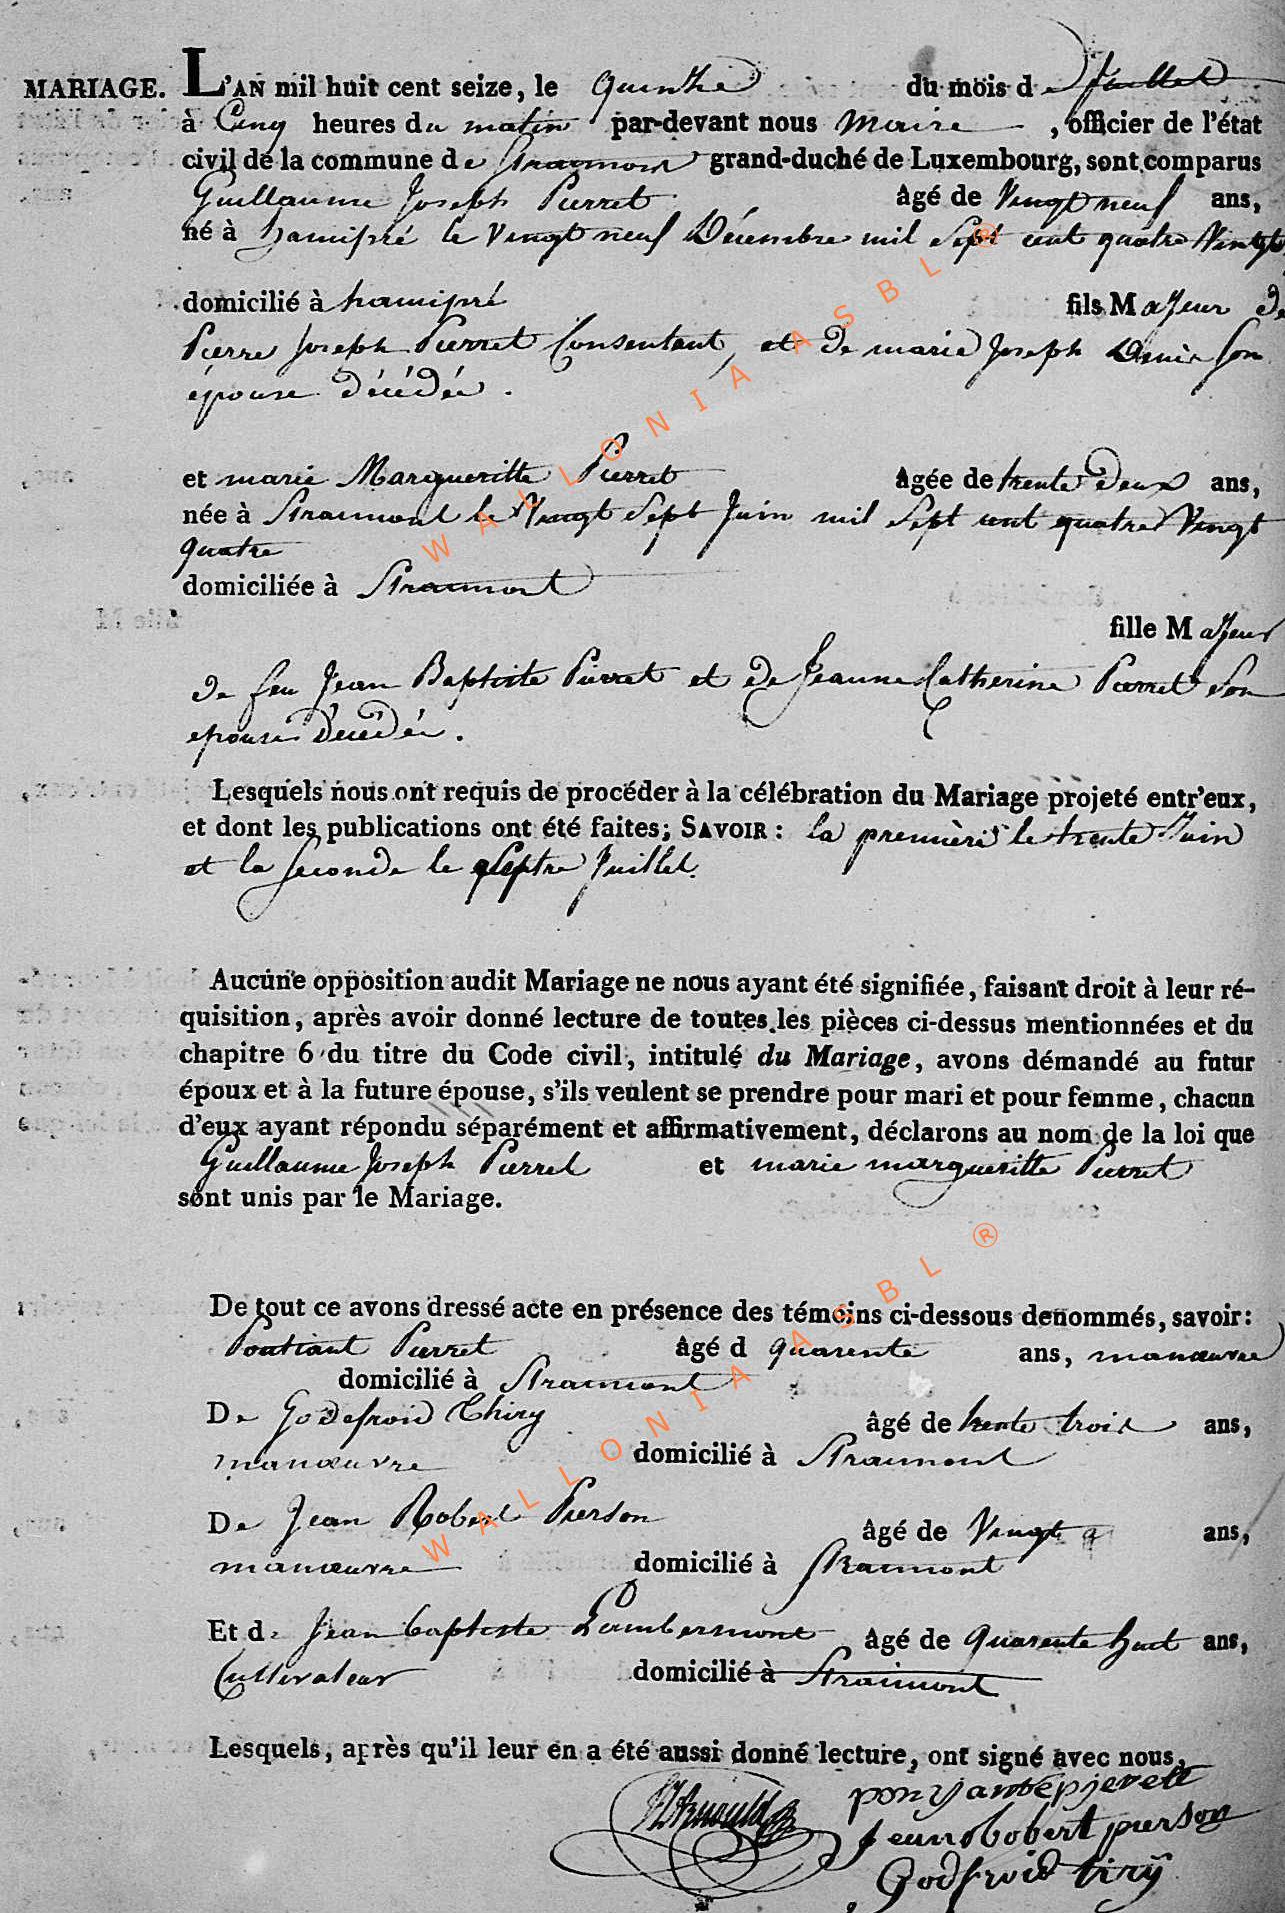 MARIAGE. L'AN mil huit cent seize, le quinze du mois de Juillet
à Cinq heures du matin par-devant nous Maire, officier de l'état
civil de la commune de Straimont grand-duché de Luxembourg, sont comparus
Guillaume Joseph Pierret âgé de Vingt neuf ans,
né à hamipré le Vingt neuf Décembre mil Sept cent quatre Vingt
domicilié à hamipré fils Majeur de
Pierre Joseph Pierret Consentant, et de marie Joseph Son
épouse décédée.
et marie Margueritte Pierret âgée de trente deux ans,
née à Straimont le Vingt Sept Juin mil Sept cent quatre Vingt
quatre
domiciliée à Straimont
fille Majeur
de feu Jean Baptiste Pierret et de Jeanne Catherine Pierret Son
epouse décédée.
Lesquels nous ont requis de procéder à la célébration du Mariage projeté entr'eux,
et dont les publications ont été faites; SAVOIR: la première le trente Juin
et la Seconde le Septre Juillet.
Aucune opposition audit Mariage ne nous ayant été signifiée, faisant droit à leur ré-
quisition, après avoir donné lecture de toutes les pièces ci-dessus mentionnées et du
chapitre 6 du titre du Code civil, intitulé du Mariage, avons démandé au futur
époux et à la future épouse, s'ils veulent se prendre pour mari et pour femme, chacun
d'eux ayant répondu séparément et affirmativement, déclarons au nom de la loi que
Guillaume Joseph Pierret et marie margueritte Pierret
sont unis par le Mariage.
De tout ce avons dressé acte en présence des témoins ci-dessous denommés, savoir:
Pontiant Pierret âgé d quarente ans, manœuvre
domicilié à Straimont
De Godefroid Thiry âgé de trente trois ans,
manœuvre domicilié à Straimont
De Jean Robert Pierson âgé de Vingt ans,
manœuvre domicilié à Straimont
Et de Jean baptiste Lambermont âgé de Quarente huit ans,
Cultivateur domicilié à Straimont
Lesquels, après qu'il leur en a été aussi donné lecture, ont signé avec nous,
ponsjante pjerett
Jean Robert pierson
Godfroid tiry
WALLONIA ASBL ®
WALLONIA ASBL ®